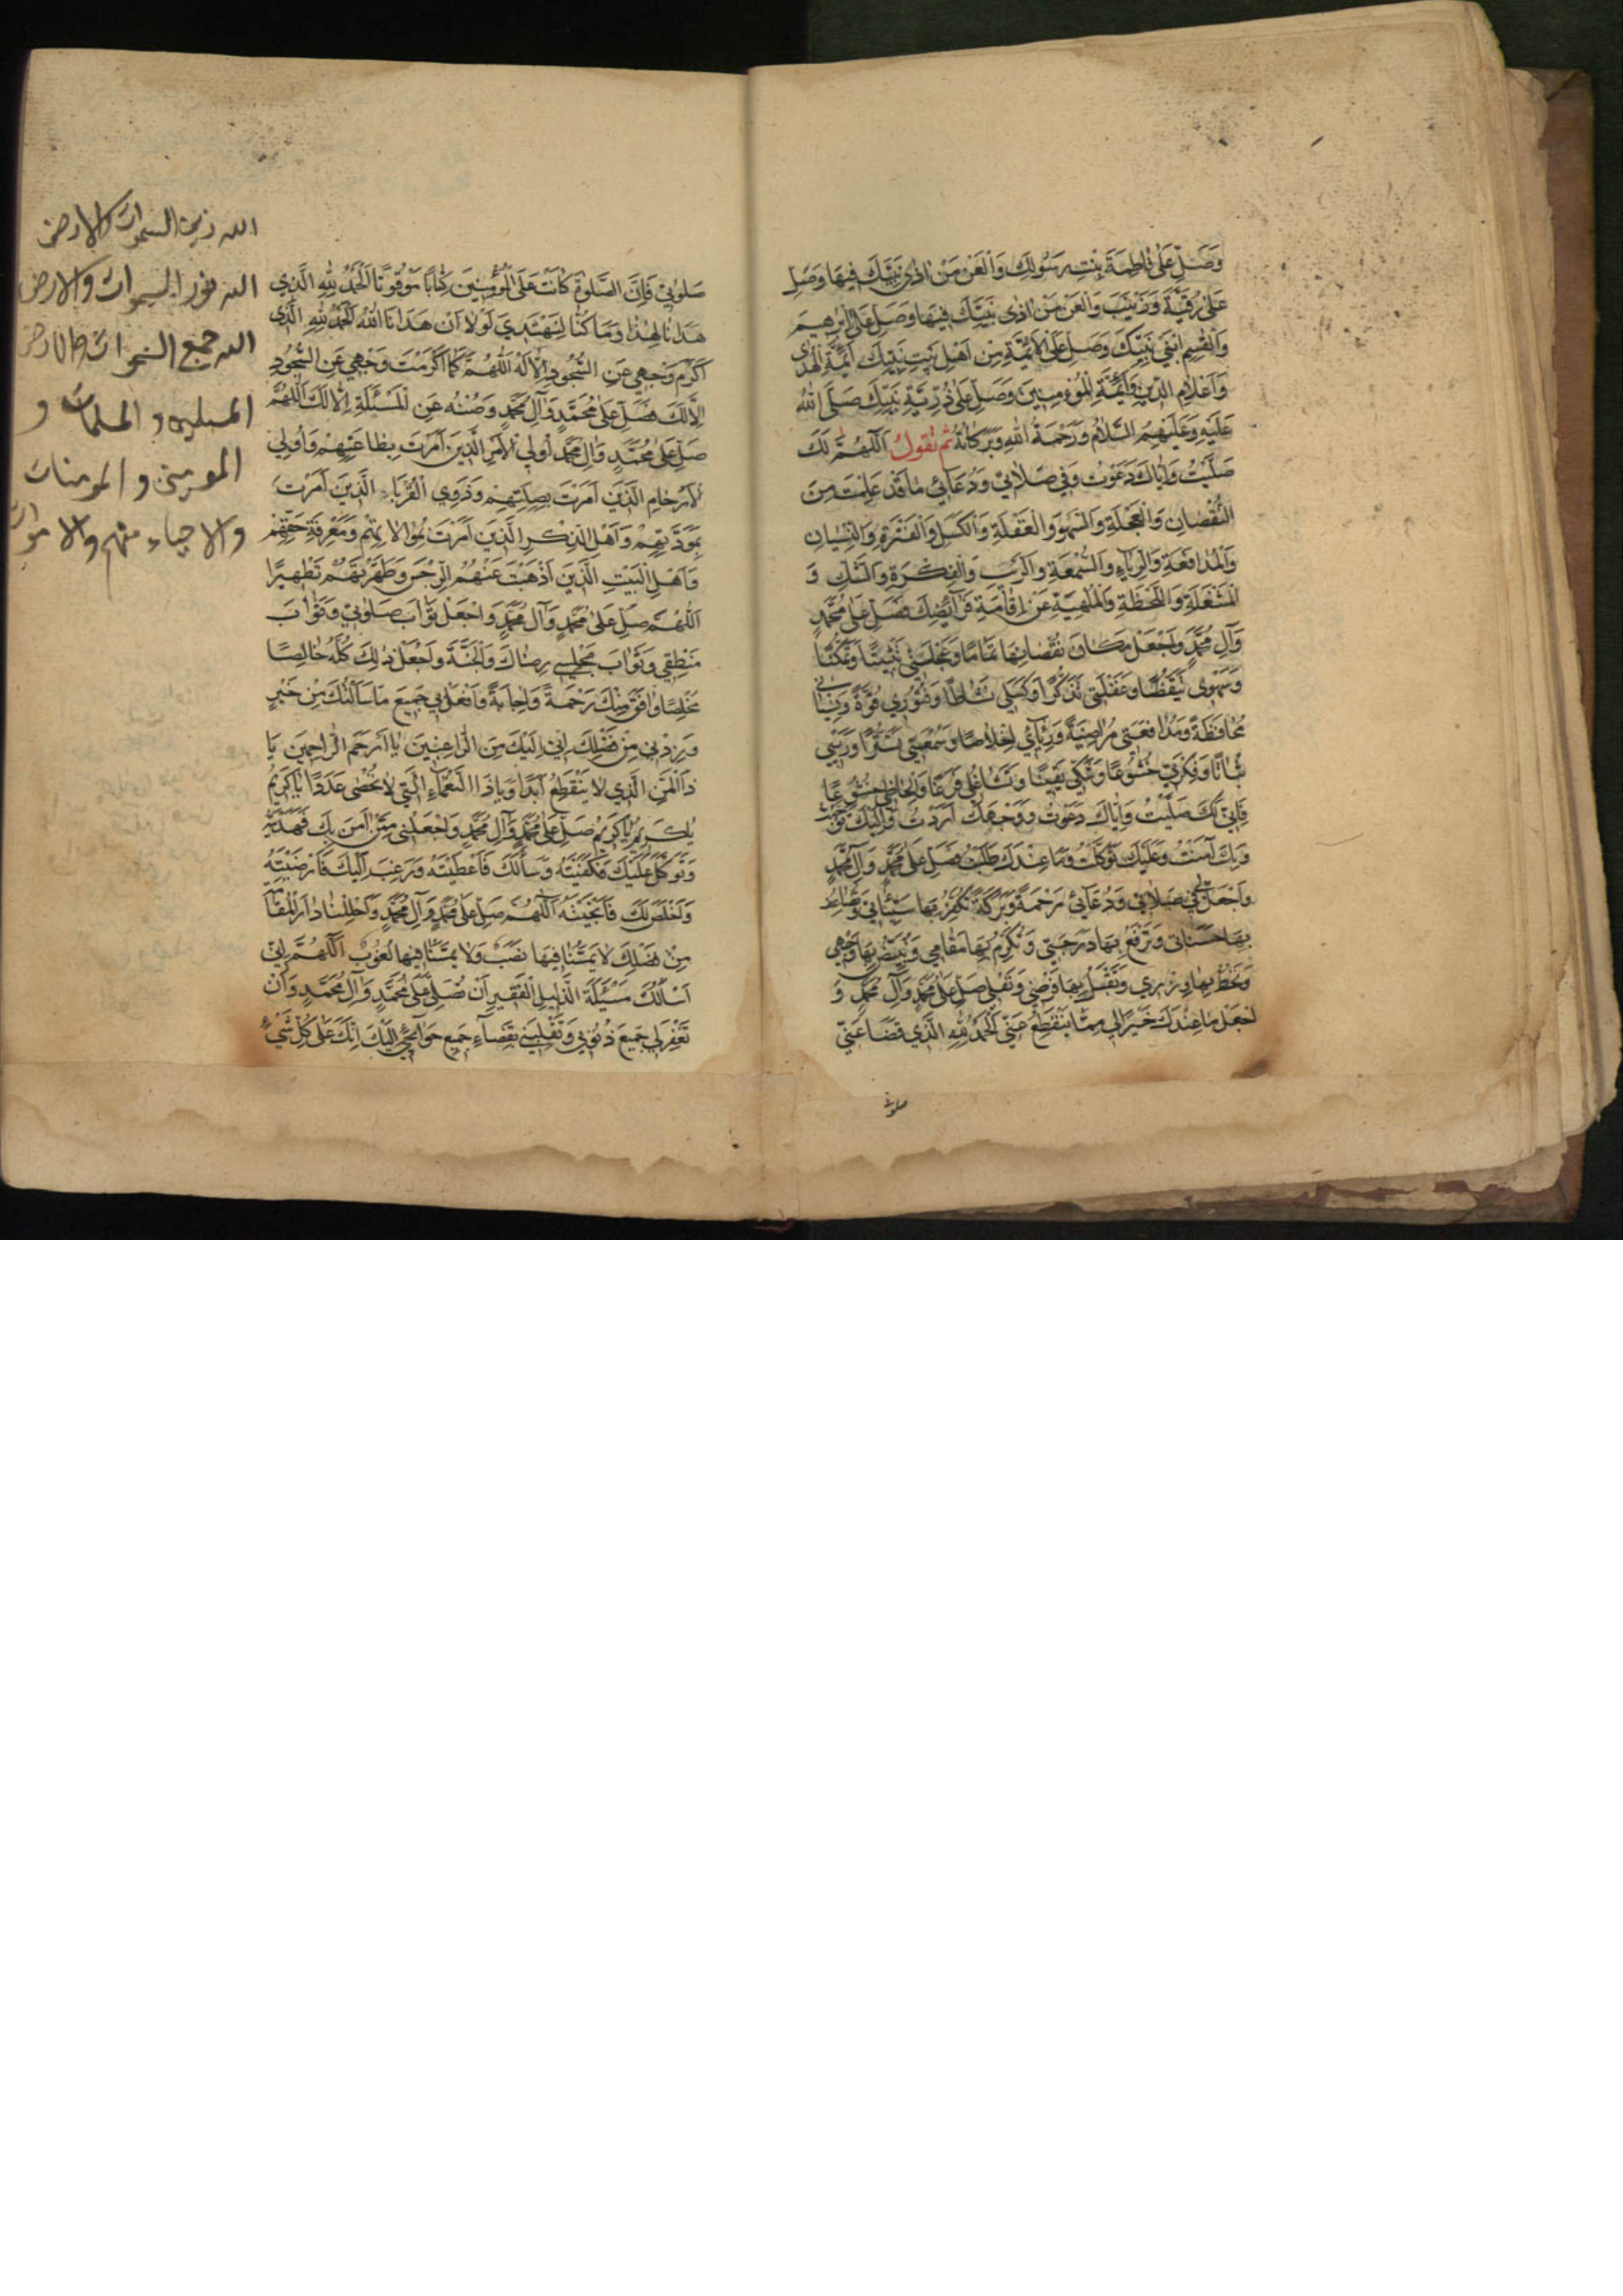 وَصَلِّ عَلَى فَاطِمَةَ بِنْتِ رَسُولِكَ وَالْعَنْ مَنْ اٰذٰى نَبِيَّكَ فِيهَا وَصَلِّ
عَلَى رُقَيَّةَ وَزَيْنَبَ وَالْعَنْ مَنْ اٰذٰى نَبِيَّكَ فِيهَا وَصَلِّ عَلَى اِبْرٰهِيمَ
وَالْقٰسِمِ ابْنَيْ نَبِيِّكَ وَصَلِّ عَلَى الْاَئِمَّةِ مِنْ اَهْلِ بَيْتِ نَبِيِّكَ اَئِمَّةِ الْهُدٰى
وَاَعْلَامِ الدِّينِ وَاَئِمَّةِ الْمُؤْمِنِينَ وَصَلِّ عَلَى ذُرِّيَّةِ نَبِيِّكَ صَلَّى اللهُ
عَلَيْهِ وَعَلَيْهِمُ السَّلَامُ وَرَحْمَةُ اللهِ وَبَرَكَاتُهُ ثم تقول اَللّٰهُمَّ لَكَ
صَلَّيْتُ وَاِيَّاكَ دَعَوْتُ وَفِي صَلَاتِي وَدُعَائِي مَا قَدْ عَلِمْتَ مِنَ
النُّقْصَانِ وَالْعَجَلَةِ وَالسَّهْوِ وَالْغَفْلَةِ وَالْكَسَلِ وَالْفَتْرَةِ وَالنِّسْيَانِ
وَالْمُدَافَعَةِ وَالرِّيَاءِ وَالسُّمْعَةِ وَالرَّيْبِ وَالْفِكْرَةِ وَالشَّكِّ وَ
الْمَشْغَلَةِ وَاللَّحْظَةِ وَالْمُلْهِيَةِ عَنْ اِقَامَةِ فَرَائِضِكَ فَصَلِّ عَلَى مُحَمَّدٍ
وَآلِ مُحَمَّدٍ وَاجْعَلْ مَكَانَ نُقْصَانِهَا تَمَامًا وَعَجَلَتِي تَثْبِيتًا وَتَمَكُّنًا
وَسَهْوِي تَيَقُّظًا وَغَفْلَتِي تَذَكُّرًا وَكَسَلِي نَشَاطًا وَفُتُورِي قُوَّةً وَنِسْيَانِي
مُحَافَظَةً وَمُدَافَعَتِي مُوَاظَبَةً وَرِيَائِي اِخْلَاصًا وَسُمْعَتِي تَسَتُّرًا وَرَيْبِي
ثَبَاتًا وَفِكْرِي خُشُوعًا وَشَكِّي يَقِينًا وَتَشَاغُلِي فَرَاغًا وَلِحَاظِي خُشُوعًا
فَاِنِّي لَكَ صَلَّيْتُ وَاِيَّاكَ دَعَوْتُ وَوَجْهَكَ اَرَدْتُ وَاِلَيْكَ تَوَجَّهْتُ
وَبِكَ آمَنْتُ وَعَلَيْكَ تَوَكَّلْتُ وَمَا عِنْدَكَ طَلَبْتُ فَصَلِّ عَلَى مُحَمَّدٍ وَآلِ مُحَمَّدٍ
وَاجْعَلْ لِي فِي صَلَاتِي وَدُعَائِي رَحْمَةً وَبَرَكَةً تُكَفِّرُ بِهَا سَيِّئَاتِي وَتُضَاعِفُ
بِهَا حَسَنَاتِي وَتَرْفَعُ بِهَا دَرَجَتِي وَتُكْرِمُ بِهَا مَقَامِي وَتُبَيِّضُ بِهَا وَجْهِي
وَتَحُطُّ بِهَا وِزْرِي وَتَقَبَّلْ بِهَا فَرْضِي وَنَفْلِي صَلِّ عَلَى مُحَمَّدٍ وَآلِ مُحَمَّدٍ وَ
اجْعَلْ مَا عِنْدَكَ خَيْرًا لِي مِمَّا يَنْقَطِعُ عَنِّي اَلْحَمْدُ لِلّٰهِ الَّذِي قَضَا عَنِّي
صلوتي
صَلٰوتِي فَاِنَّ الصَّلٰوةَ كَانَتْ عَلَى الْمُؤْمِنِينَ كِتَابًا مَوْقُوتًا اَلْحَمْدُ لِلّٰهِ الَّذِي
هَدَانَا لِهٰذَا وَمَا كُنَّا لِنَهْتَدِيَ لَوْلَا اَنْ هَدَانَا اللهُ اَلْحَمْدُ لِلّٰهِ الَّذِي
اَكْرَمَ وَجْهِي عَنِ السُّجُودِ اِلَّا لَهُ اَللّٰهُمَّ كَمَا اَكْرَمْتَ وَجْهِي عَنِ السُّجُودِ
اِلَّا لَكَ فَصَلِّ عَلَى مُحَمَّدٍ وَآلِ مُحَمَّدٍ وَصُنْهُ عَنِ الْمَسْئَلَةِ اِلَّا لَكَ اَللّٰهُمَّ
صَلِّ عَلَى مُحَمَّدٍ وَآلِ مُحَمَّدٍ اُولِي الْاَمْرِ الَّذِينَ اَمَرْتَ بِطَاعَتِهِمْ وَاُولِي
الْاَرْحَامِ الَّذِينَ اَمَرْتَ بِصِلَتِهِمْ وَذَوِي الْقُرْبَاءِ الَّذِينَ اَمَرْتَ
بِمَوَدَّتِهِمْ وَاَهْلِ الذِّكْرِ الَّذِينَ اَمَرْتَ بِمُوَالَاتِهِمْ وَمَعْرِفَةِ حَقِّهِمْ
وَاَهْلِ الْبَيْتِ الَّذِينَ اَذْهَبْتَ عَنْهُمُ الرِّجْسَ وَطَهَّرْتَهُمْ تَطْهِيرًا
اَللّٰهُمَّ صَلِّ عَلَى مُحَمَّدٍ وَآلِ مُحَمَّدٍ وَاجْعَلْ ثَوَابَ صَلٰوتِي وَثَوَابَ
مَنْطِقِي وَثَوَابَ مَجْلِسِي رِضَاكَ وَالْجَنَّةَ وَاجْعَلْ ذٰلِكَ كُلَّهُ خَالِصًا
مُخْلِصًا وَافَقَ مِنْكَ رَحْمَةً وَاِجَابَةً وَافْعَلْ بِي جَمِيعَ مَا سَاَلْتُكَ مِنْ خَيْرٍ
وَزِدْنِي مِنْ فَضْلِكَ اِنِّي اِلَيْكَ مِنَ الرَّاغِبِينَ يَا اَرْحَمَ الرَّاحِمِينَ يَا
ذَا الْمَنِّ الَّذِي لَا يَنْقَطِعُ اَبَدًا وَيَا ذَا النَّعْمَاءِ الَّتِي لَا تُحْصٰى عَدَدًا يَا كَرِيمُ
يَا كَرِيمُ يَا كَرِيمُ صَلِّ عَلَى مُحَمَّدٍ وَآلِ مُحَمَّدٍ وَاجْعَلْنِي مِمَّنْ اٰمَنَ بِكَ فَهَدَيْتَهُ
وَتَوَكَّلَ عَلَيْكَ فَكَفَيْتَهُ وَسَأَلَكَ فَاَعْطَيْتَهُ وَرَغِبَ اِلَيْكَ فَاَرْضَيْتَهُ
وَاَخْلَصَ لَكَ فَاَنْجَيْتَهُ اَللّٰهُمَّ صَلِّ عَلَى مُحَمَّدٍ وَآلِ مُحَمَّدٍ وَاَحْلِلْنَا دَارَ الْمُقَامَةِ
مِنْ فَضْلِكَ لَا يَمَسُّنَا فِيهَا نَصَبٌ وَلَا يَمَسُّنَا فِيهَا لُغُوبٌ اَللّٰهُمَّ اِنِّي
اَسْاَلُكَ مَسْئَلَةَ الذَّلِيلِ الْفَقِيرِ اَنْ تُصَلِّيَ عَلَى مُحَمَّدٍ وَآلِ مُحَمَّدٍ وَاَنْ
تَغْفِرَ لِي جَمِيعَ ذُنُوبِي وَتَقْلِبَنِي بِقَضَاءِ جَمِيعِ حَوَائِجِي اِلَيْكَ اِنَّكَ عَلَى كُلِّ شَيْءٍ
الله زين السموات والارض
الله نور السموات والارض
الله جميع السموات والارض
المسلمين والمسلمات و
المومنين و المومنات
والاحياء منهم والاموات